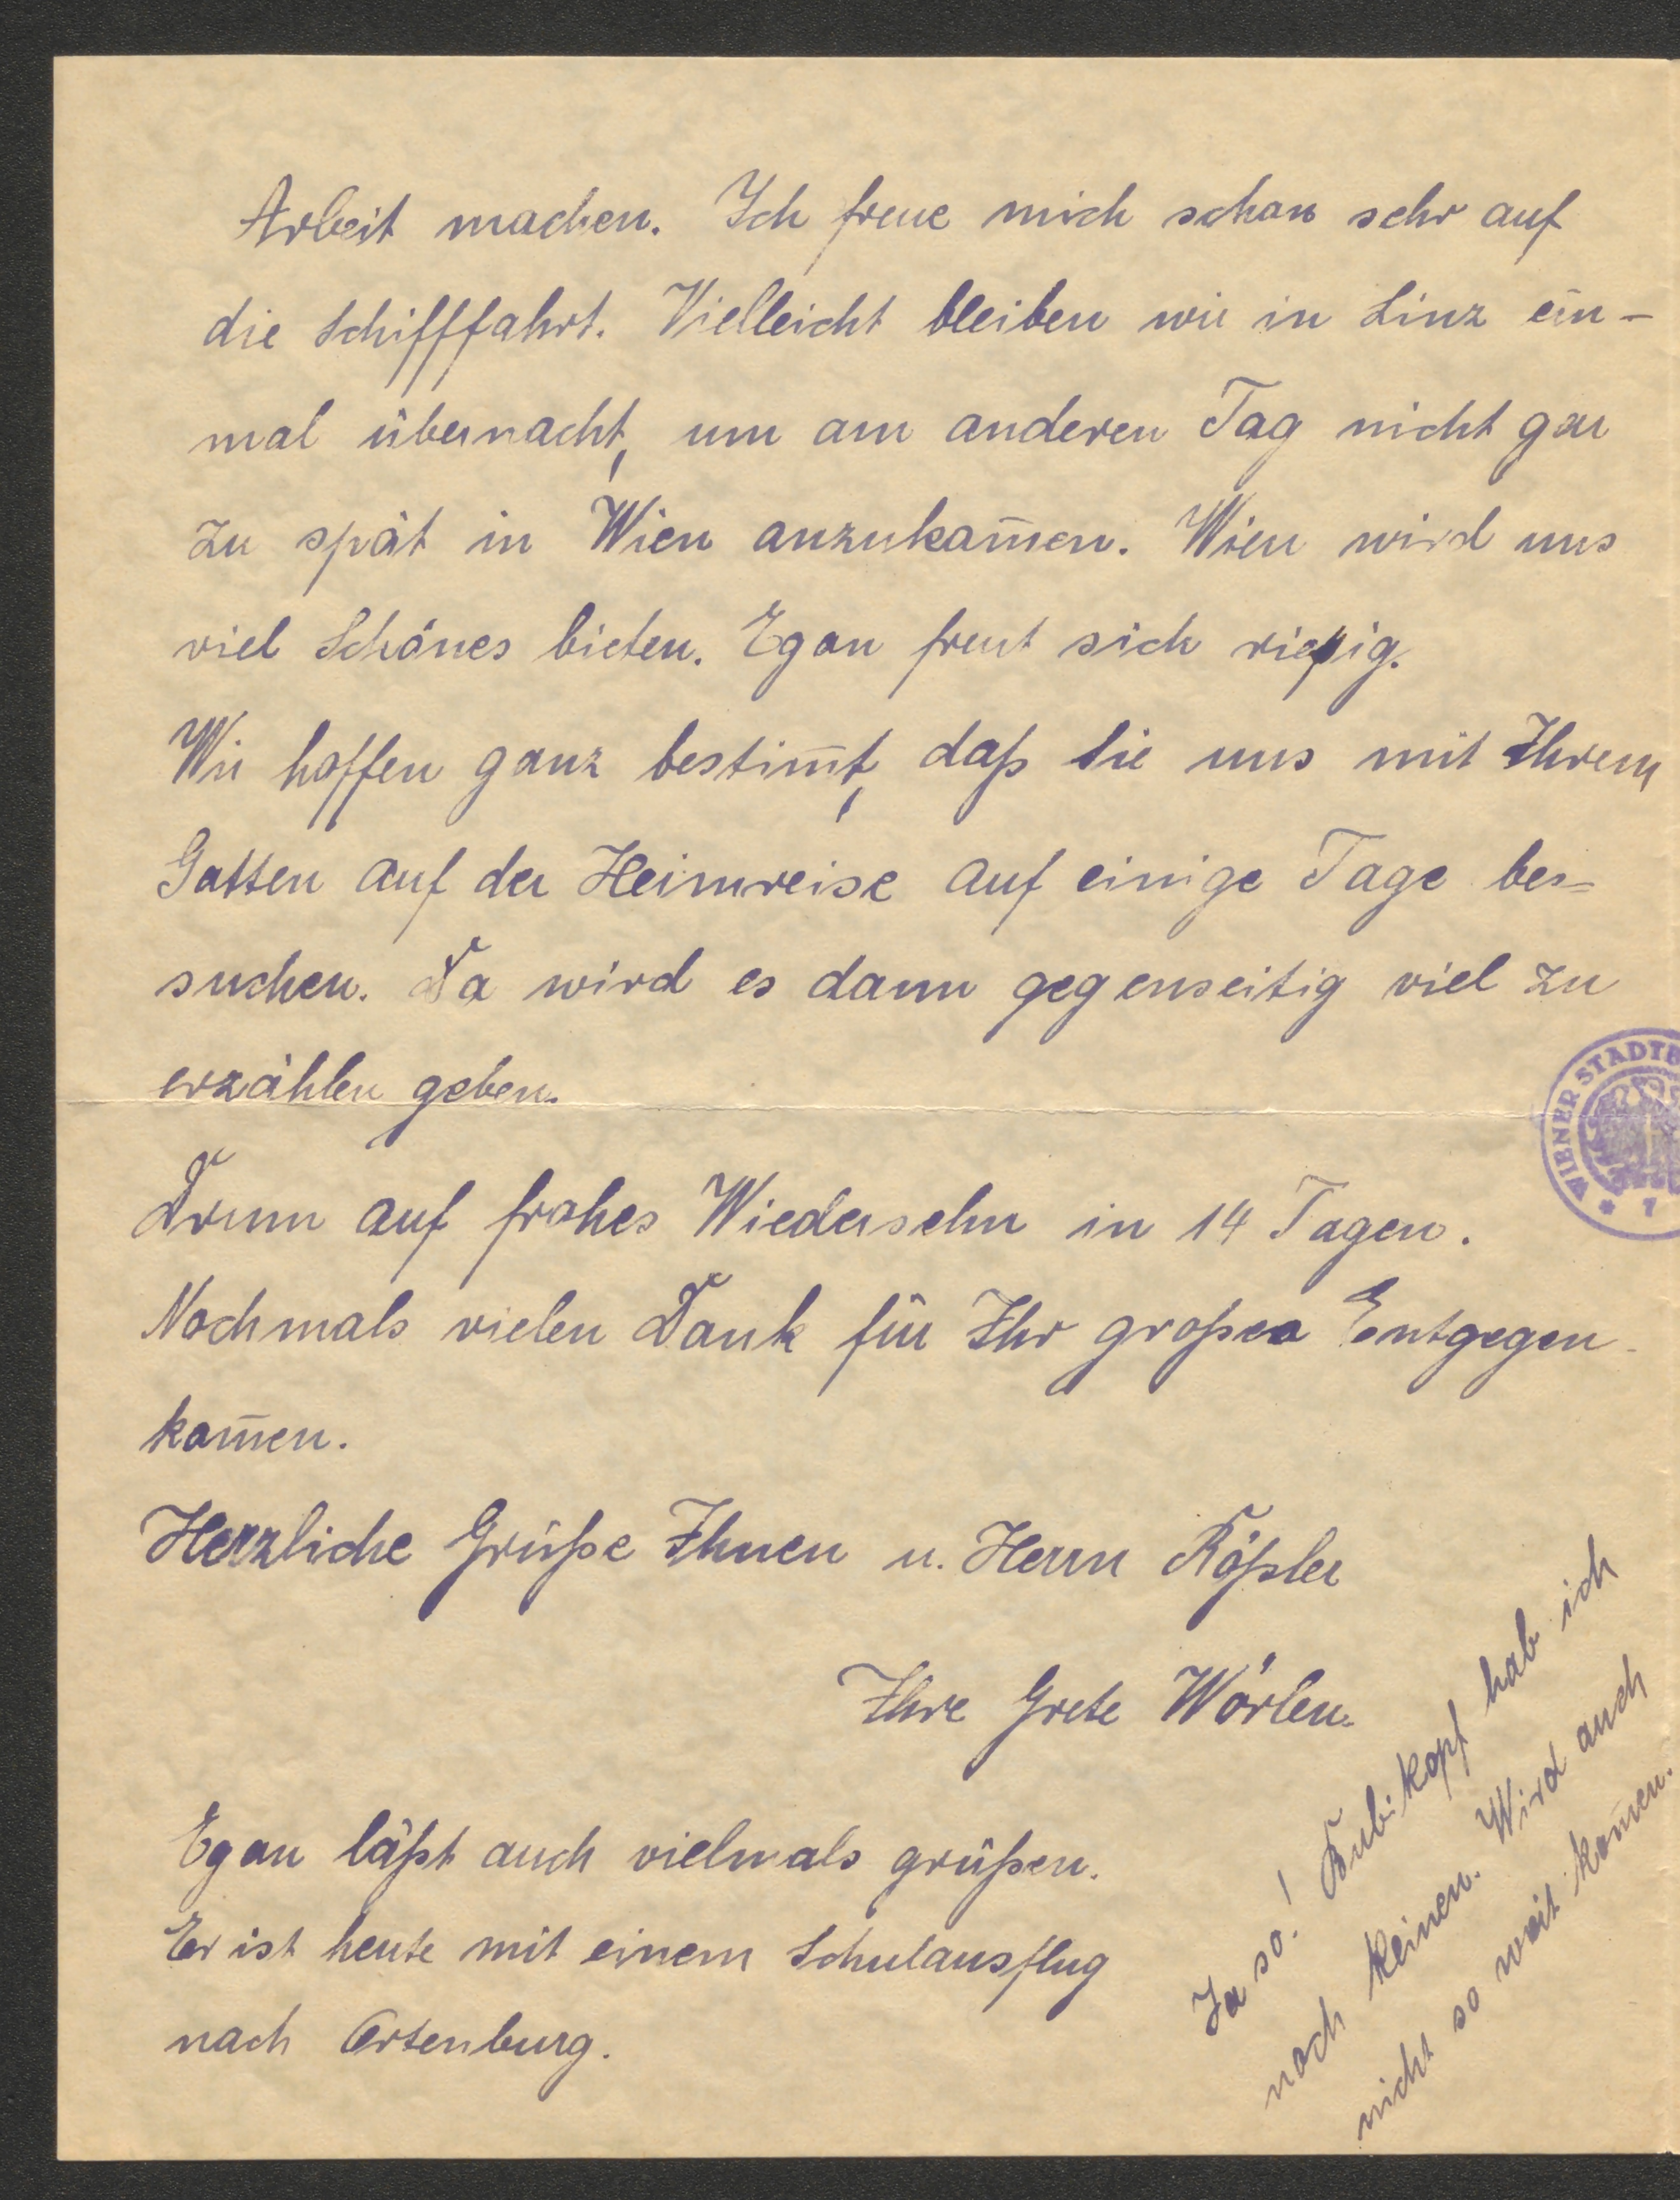 Arbeit machen. Ich freue mich schon sehr auf
die Schifffahrt. Vielleicht bleiben wir in Linz ein-
mal übernacht, um am anderen Tag nicht gar
zu spät in Wien anzukom̅en. Wien wird uns
viel Schönes bieten. Egon freut sich riesig.
Wir hoffen ganz bestim̅t, daß Sie uns mit Ihrem
Gatten auf der Heimreise auf einige Tage be=
suchen. Da wird es dann gegenseitig viel zu
erzählen geben.
Drum auf frohes Wiedersehn in 14 Tagen.
Nochmals vielen Dank für Ihr großes Entgegen-
kom̅en.
Herzliche Grüße Ihnen u. Herrn Rößler
Ihre Grete Wörlen.
Egon läßt auch vielmals grüßen.
Er ist heute mit einem Schulausflug
nach Ortenburg.
Ja so! Bubikopf hab ich
noch keinen. Wird auch
nicht so weit kom̅en.
WIENER STADTB
7